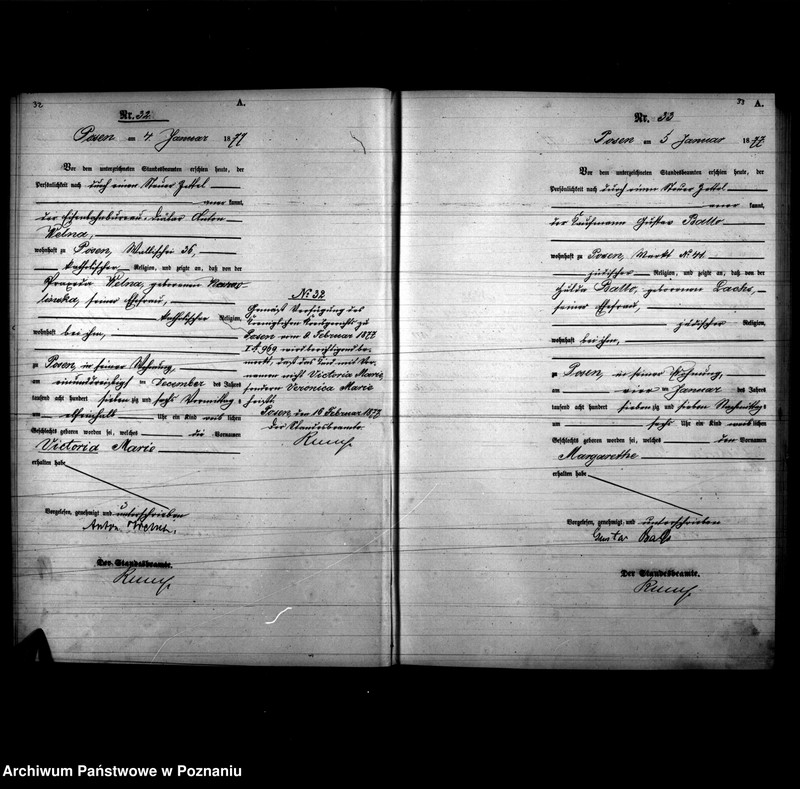 32
A.
Nr. 32.
Posen am 4. Januar 1877
Vor dem unterzeichneten Standesbeamten erschien heute, der
Persönlichkeit nach durch einen Steuer Zettel
kannt,
der Eisenbahnbureau-Diätar Anton
Welna,
wohnhaft zu Posen, Wallischei 36,
katholischer Religion, und zeigte an, daß von der
Praxeda Welna, geborenen
seiner Ehefrau,
katholischer Religion,
wohnhaft bei ihm,
zu Posen, in seiner Wohnung,
am einunddreißigsten December des Jahres
tausend acht hundert siebenzig und sechs Vormittags
um elfeinhalb Uhr ein Kind weiblichen
Geschlechts geboren worden sei, welches die Vornamen
Victoria Marie
erhalten habe
Vorgelesen, genehmigt und unterschrieben
Anton Welna.
Der Standesbeamte.
No 32
Gemäß Verfügung des
Königlichen Kreisgerichts zu
Posen vom 8. Februar 1877
969 wird berichtigend be-
merkt, dass das Kind mit Vor-
namen nicht Victoria Marie,
sondern Veronica Marie
heißt.
Posen, den 16 Februar 1877.
Der Standesbeamte
33
A.
Nr. 33
Posen am 5 Januar 1877.
Vor dem unterzeichneten Standesbeamten erschien heute, der
Persönlichkeit nach durch einen Steuer Zettel
kannt,
der Kaufmann Gustav Ballo
wohnhaft zu Posen, Markt No. 44.
jüdischer Religion, und zeigte an, daß von der
Hulda Ballo, geborenen Lachs,
seiner Ehefrau,
jüdischer Religion,
wohnhaft bei ihm,
zu Posen, in seiner Wohnung,
am vier ten Januar des Jahres
tausend acht hundert siebenzig und sieben Nachmittags
um sechs Uhr ein Kind weiblichen
Geschlechts geboren worden sei, welches den Vornamen
Margarethe
erhalten habe
Vorgelesen, genehmigt und unterschrieben
Gustav Ballo
Der Standesbeamte.
Archiwum Państwowe w Poznaniu